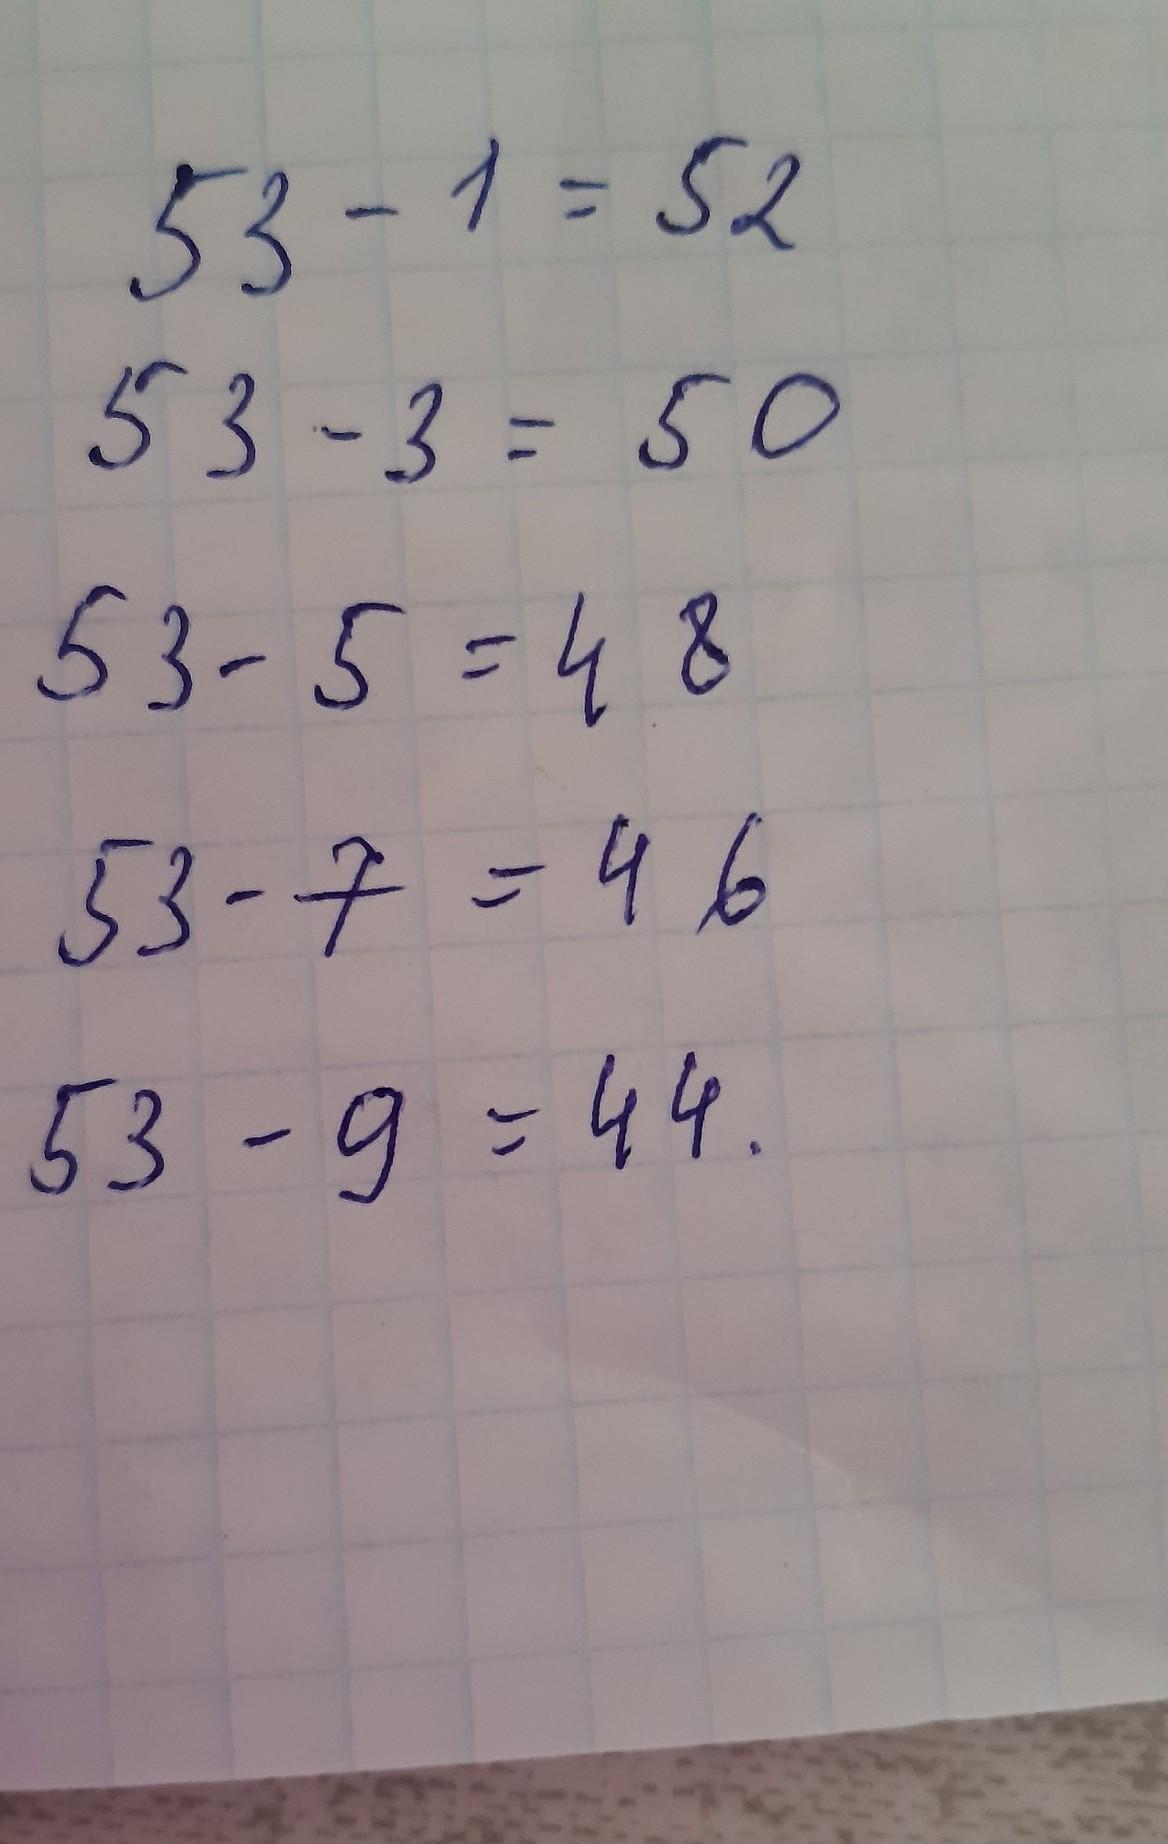 53 - 1 = 52
53 - 3 = 50
53 - 5 = 48
53 - 7 = 46
53 - 9 = 44.